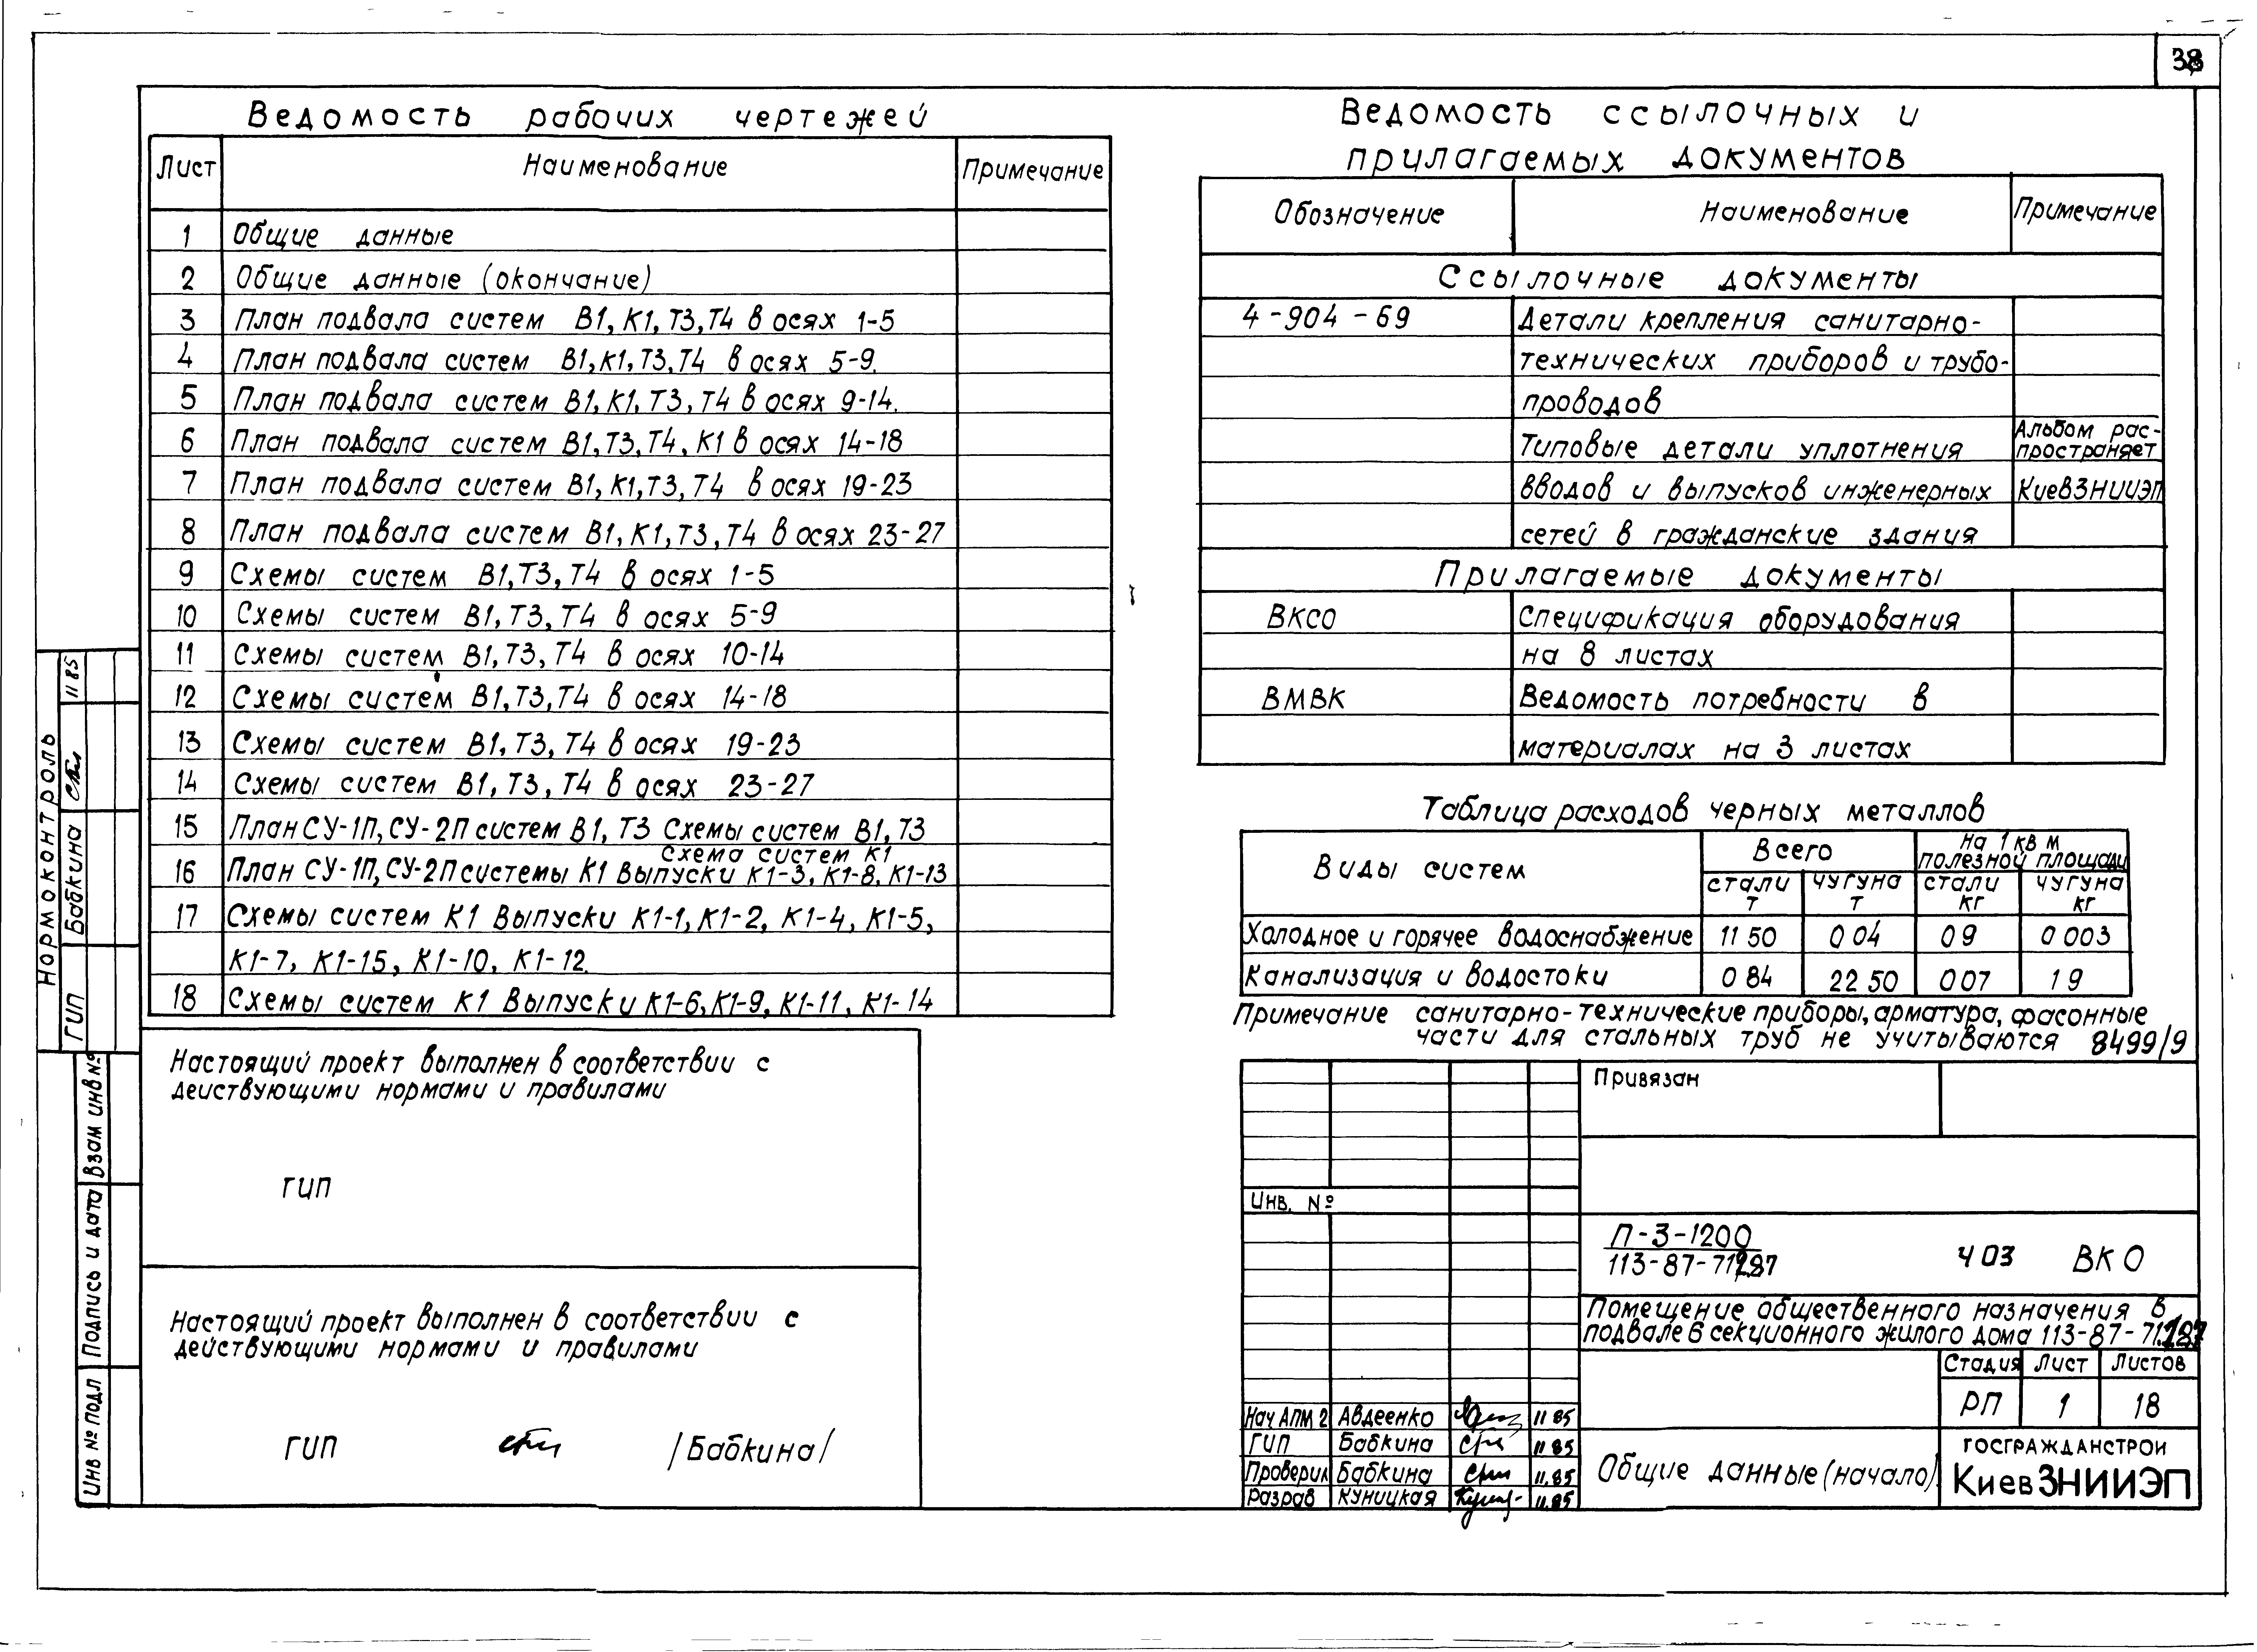 38
Ведомость рабочих чертежей
Лист Наименование Примечание
1 Общие данные
2 Общие данные (окончание)
3 План подвала систем В1, К1, Т3, Т4 в осях 1-5
4 План подвала систем В1, К1, Т3, Т4 в осях 5-9.
5 План подвала систем В1, К1, Т3, Т4 в осях 9-14.
6 План подвала систем В1, Т3, Т4, К1 в осях 14-18
7 План подвала систем В1, К1, Т3, Т4 в осях 19-23
8 План подвала систем В1, К1, Т3, Т4 в осях 23-27
9 Схемы систем В1, Т3, Т4 в осях 1-5
10 Схемы систем В1, Т3, Т4 в осях 5-9
11 Схемы систем В1, Т3, Т4 в осях 10-14
12 Схемы систем В1, Т3, Т4 в осях 14-18
13 Схемы систем В1, Т3, Т4 в осях 19-23
14 Схемы систем В1, Т3, Т4 в осях 23-27
15 План СУ-1П, СУ-2П систем В1, Т3 Схемы систем В1, Т3
Схема систем К1
16 План СУ-1П, СУ-2П системы К1 Выпуски К1-3, К1-8, К1-13
17 Схемы систем К1 Выпуски К1-1, К1-2, К1-4, К1-5,
К1-7, К1-15, К1-10, К1-12.
18 Схемы систем К1 Выпуски К1-6, К1-9, К1-11, К1-14
Настоящий проект выполнен в соответствии с
действующими нормами и правилами
ГИП
Настоящий проект выполнен в соответствии с
действующими нормами и правилами
ГИП /Бабкина/
Ведомость ссылочных и
прилагаемых документов
Обозначение Наименование Примечание
Ссылочные документы
4-904-69 Детали крепления санитарно-
технических приборов и трубо-
проводов
Типовые детали уплотнения Альбом рас-
пространяет
вводов и выпусков инженерных КиевЗНИИЭП
сетей в гражданские здания
Прилагаемые документы
ВКСО Спецификация оборудования
на 8 листах
ВМВК Ведомость потребности в
материалах на 3 листах
Таблица расходов черных металлов
Виды систем Всего На 1 кв м
полезной площади
стали т чугуна т стали кг чугуна кг
Холодное и горячее водоснабжение 11 50 0 04 0 9 0 003
Канализация и водостоки 0 84 22 50 0 07 1 9
Примечание санитарно-технические приборы, арматура, фасонные
части для стальных труб не учитываются 8499/9
Привязан
Инв. №
П-3-1200
113-87-71
Ч 03 ВК О
Помещение общественного назначения в
подвале 6 секционного жилого дома 113-87-71
Стадия Лист Листов
РП 1 18
Нач АПМ 2 Авдеенко 11 85
ГИП Бабкина 11 85
Проверил Бабкина 11.85
Разраб Куницкая 11.85
Общие данные (начало)
ГОСГРАЖДАНСТРОЙ
КиевЗНИИЭП
Нормоконтроль
ГИП Бабкина 11 85
Взам инв №
Подпись и дата
Инв № подл